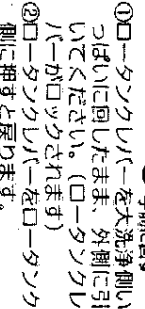 手前に回す
①ロータンクレバーを大洗浄側い
っぱいに回したまま、外側に引
いてください。(ロータンクレ
バーがロックされます)
②ロータンクレバーをロータンク
側に押すと戻ります。